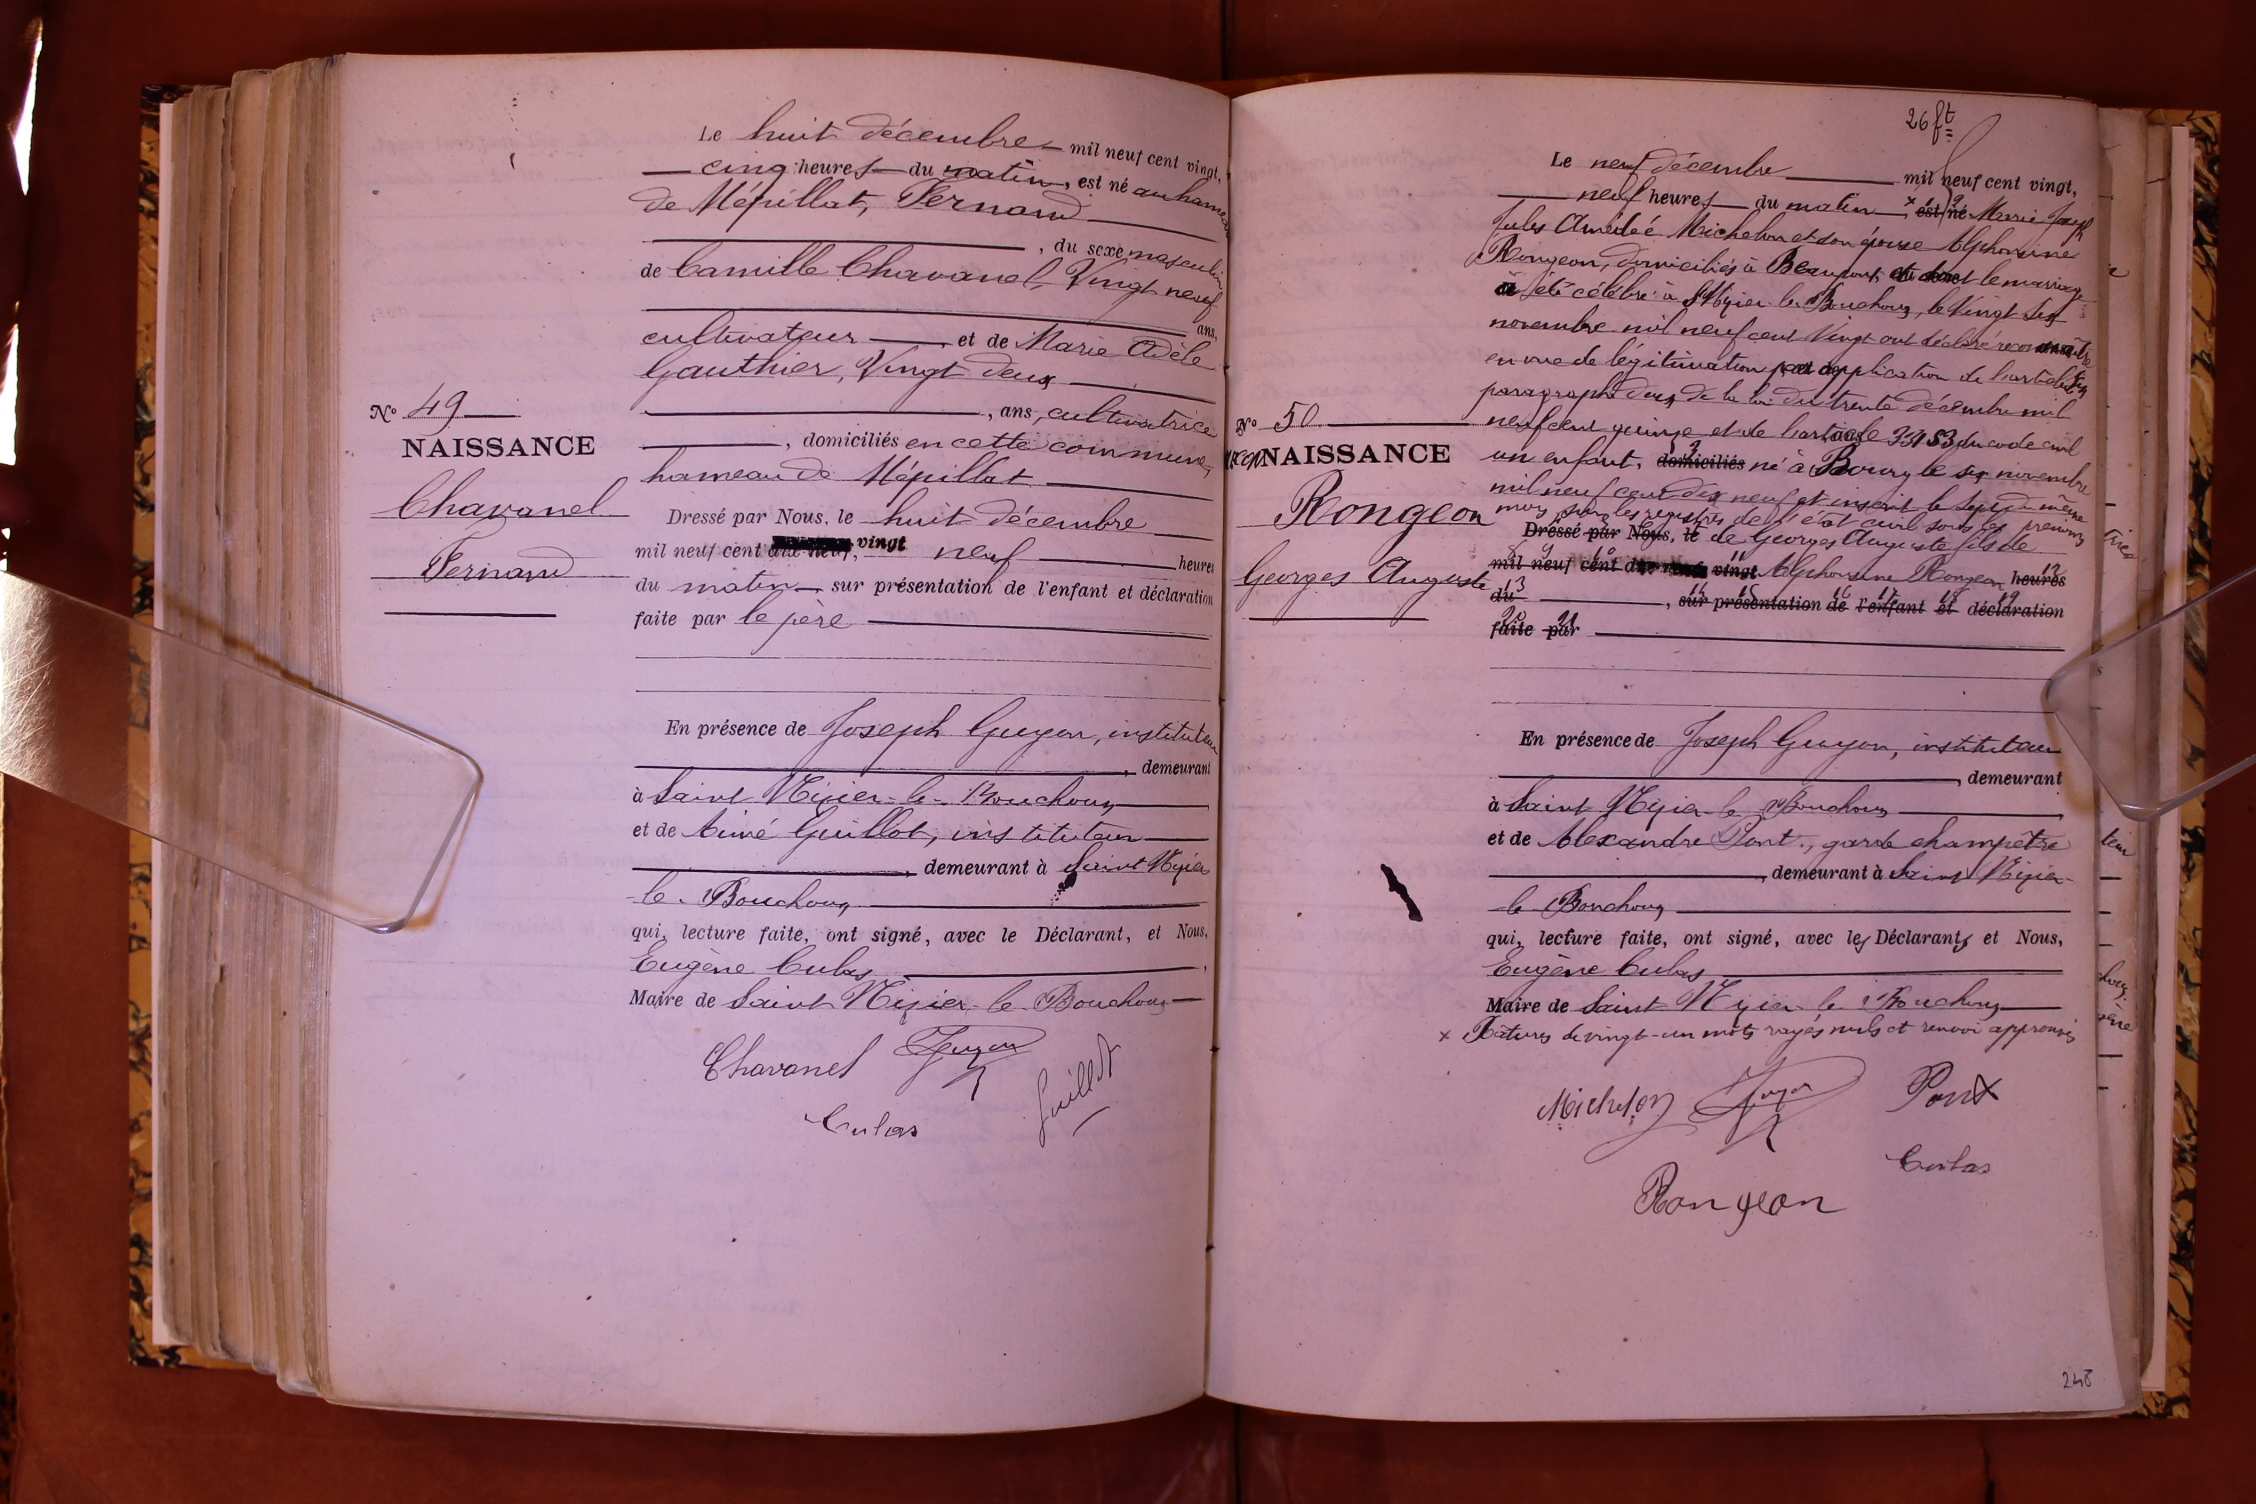 Le huit décembre mil neuf cent vingt,
cinq heures du matin, est né au hameau
de Mépillat, Fernand
, du sexe masculin
de Camille Chavanel, Vingt neuf
ans,
cultivateur et de Marie Adèle
Gauthier, Vingt deux
, ans, cultivatrice
, domiciliés en cette commune,
hameau de Mépillat
No 49
NAISSANCE
Chavanel
Fernand
Dressé par Nous, le huit décembre
mil neuf cent dix-neuf, vingt neuf heures
du matin, sur présentation de l'enfant et déclaration
faite par le père
En présence de Joseph Guyon, instituteur
, demeurant
à Saint Nizier-le-Bouchoux
et de Aimé Guillot, instituteur
, demeurant à Saint Nizier
le-Bouchoux
qui, lecture faite, ont signé, avec le Déclarant, et Nous,
Eugène Culas
Maire de Saint Nizier-le-Bouchoux
Chavanel Guyon
Guillot
Culas
26 ft
Le neuf décembre mil neuf cent vingt,
neuf heures du matin, x est né Marie Joseph
Jules Amédée Michelon et son épouse Alphonsine
Rongeon, domiciliés à Beaupont, et dont le mariage
a été célébré à St Nizier-le-Bouchoux, le Vingt six
novembre mil neuf cent Vingt ont déclaré reconnaître
en vue de légitimation par application de l'article
paragraphe deux de la loi du trente décembre mil
neuf cent quinze et de l'article 331 § 3 du code civil
un enfant, domiciliés né à Bourg le six novembre
mil neuf cent dix neuf et inscrit le sept du même
mois sur les registres de l'état civil sous les prénoms
Dressé par Nous, le de Georges Auguste fils de
mil neuf cent vingt Alphonsine Rongeon heures
du , sur présentation de l'enfant et déclaration
faite par
No 50
NAISSANCE
Rongeon
Georges Auguste
En présence de Joseph Guyon, instituteur
, demeurant
à Saint Nizier-le-Bouchoux
et de Alexandre Pont, garde champêtre
, demeurant à Saint Nizier-
le Bouchoux
qui, lecture faite, ont signé, avec les Déclarants et Nous,
Eugène Culas
Maire de Saint Nizier-le-Bouchoux
x Ratures de vingt-un mots rayés nuls et renvoi approuvés
Michelon Guyon Pont
Culas
Rongeon
248